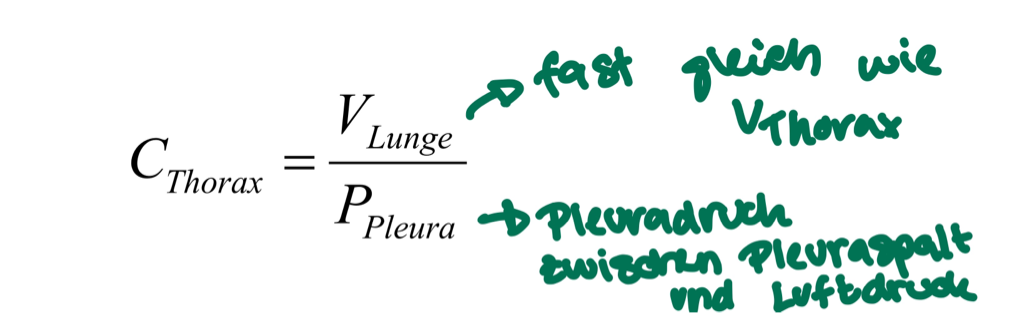 C_Thorax = V_Lunge / P_Pleura
→ fast gleich wie
VThorax
→ Pleuradruck
zwischen Pleuraspalt
und Luftdruck